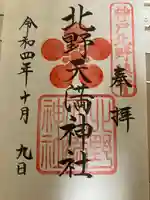 奉拝
北野天満神社
令和四年十月九日
北野
神社